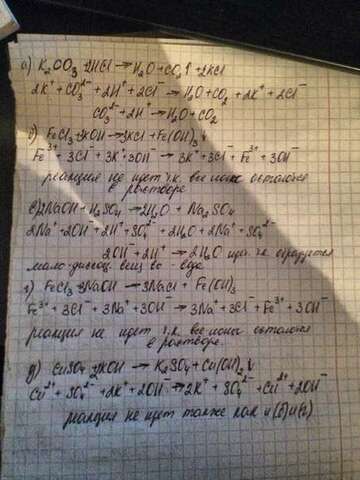 а) K₂CO₃ + 2HCl → H₂O + CO₂↑ + 2KCl
2K⁺ + CO₃²⁻ + 2H⁺ + 2Cl⁻ → H₂O + CO₂ + 2K⁺ + 2Cl⁻
CO₃²⁻ + 2H⁺ → H₂O + CO₂
б) FeCl₃ + 3KOH → 3KCl + Fe(OH)₃↓
Fe³⁺ + 3Cl⁻ + 3K⁺ 3OH⁻ → 3K⁺ + 3Cl⁻ + Fe³⁺ + 3OH⁻
реакция не идет т.к. все ионы остались
в растворе
в) 2NaOH + H₂SO₄ → 2H₂O + Na₂SO₄
2Na⁺ + 2OH⁻ + 2H⁺ + SO₄²⁻ → 2H₂O + 2Na⁺ + SO₄²⁻
2OH⁻ + 2H⁺ → 2H₂O т.к. образуется
мало диссоц. вещ во - вода
г) FeCl₃ + 3NaOH → 3NaCl + Fe(OH)₃
Fe³⁺ + 3Cl⁻ + 3Na⁺ + 3OH⁻ → 3Na⁺ + 3Cl⁻ + Fe³⁺ + 3OH⁻
реакция не идет т.к. все ионы остались
в растворе.
д) CuSO₄ + 2KOH → K₂SO₄ + Cu(OH)₂↓
Cu²⁺ + SO₄²⁻ + 2K⁺ + 2OH⁻ → 2K⁺ + SO₄²⁻ + Cu²⁺ + 2OH⁻
реакция не идет также как и (б) и (г).